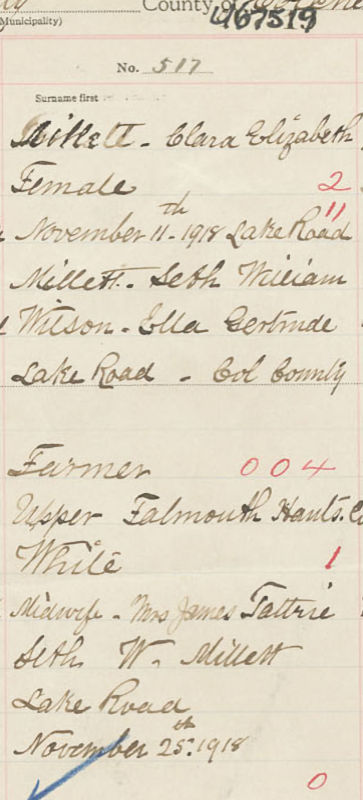 County of
467519
Municipality)
No. 517
Surname first
Millett - Clara Elizabeth
Female 2
November 11th - 1918 Lake Road 11
Millett - Seth William
Wilson - Ella Gertrude
Lake Road - Col County
Farmer 004
Upper Falmouth Hants. Co
White 1
Midwife - Mrs James Tattrie
Seth W. Millett
Lake Road
November 25th 1918
0